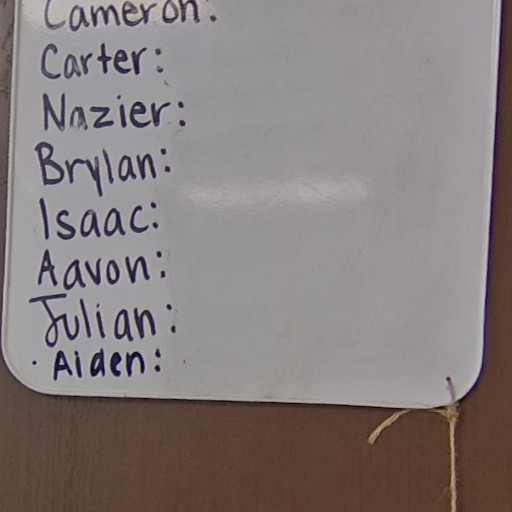 Cameron:
Carter:
Nazier:
Brylan:
Isaac:
Aavon:
Julian:
Aiden: